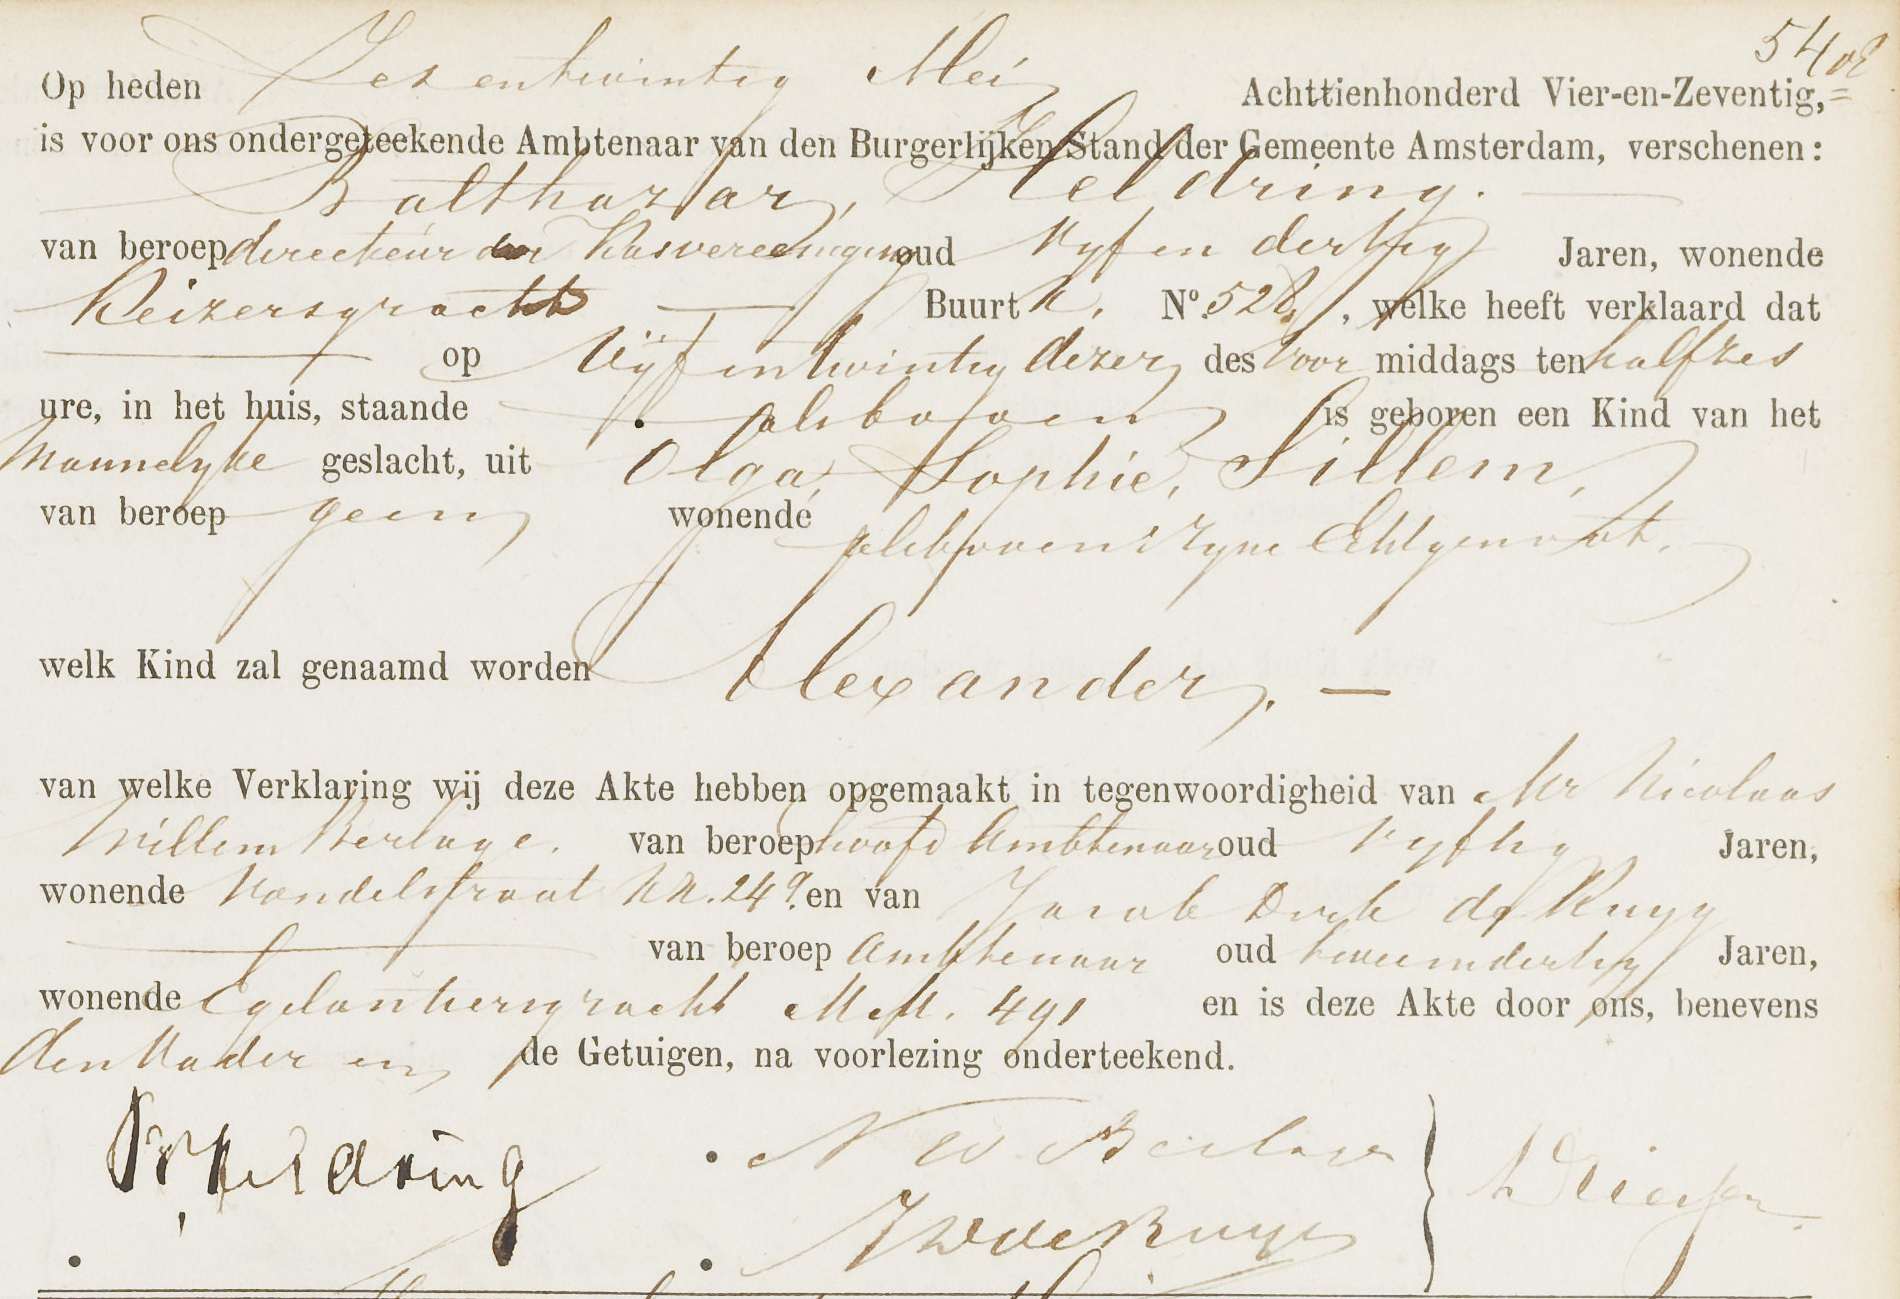 Op heden Zesentwintig Mei Achttienhonderd Vier-en-Zeventig,=
is voor ons ondergeteekende Ambtenaar van den Burgerlijken Stand der Gemeente Amsterdam, verschenen:
Balthazar, Heldring.
van beroep directeur der Kasvereeniging oud Vyf en dertig Jaren, wonende
Keizersgracht Buurt K. No. 528, , welke heeft verklaard dat
op Vijf en twintig dezer des voor middags ten half zes
ure, in het huis, staande als boven is geboren een Kind van het
Mannelyke geslacht, uit Olga, Sophie, Sillem,
van beroep geen wonende als boven zyne Echtgenoot.
welk Kind zal genaamd worden Alexander. —
van welke Verklaring wij deze Akte hebben opgemaakt in tegenwoordigheid van Mr Nicolaas
Willem Berlage. van beroep hoofd Ambtenaar oud Vyftig Jaren,
wonende Vondelstraat NN. 249. en van Jacob Dirk de Ruyy
van beroep Ambtenaar oud twee en dertig Jaren,
wonende Egelantiersgracht MM. 491 en is deze Akte door ons, benevens
den Vader en de Getuigen, na voorlezing onderteekend.
Heldring
N W Berlage
J D de Ruyy